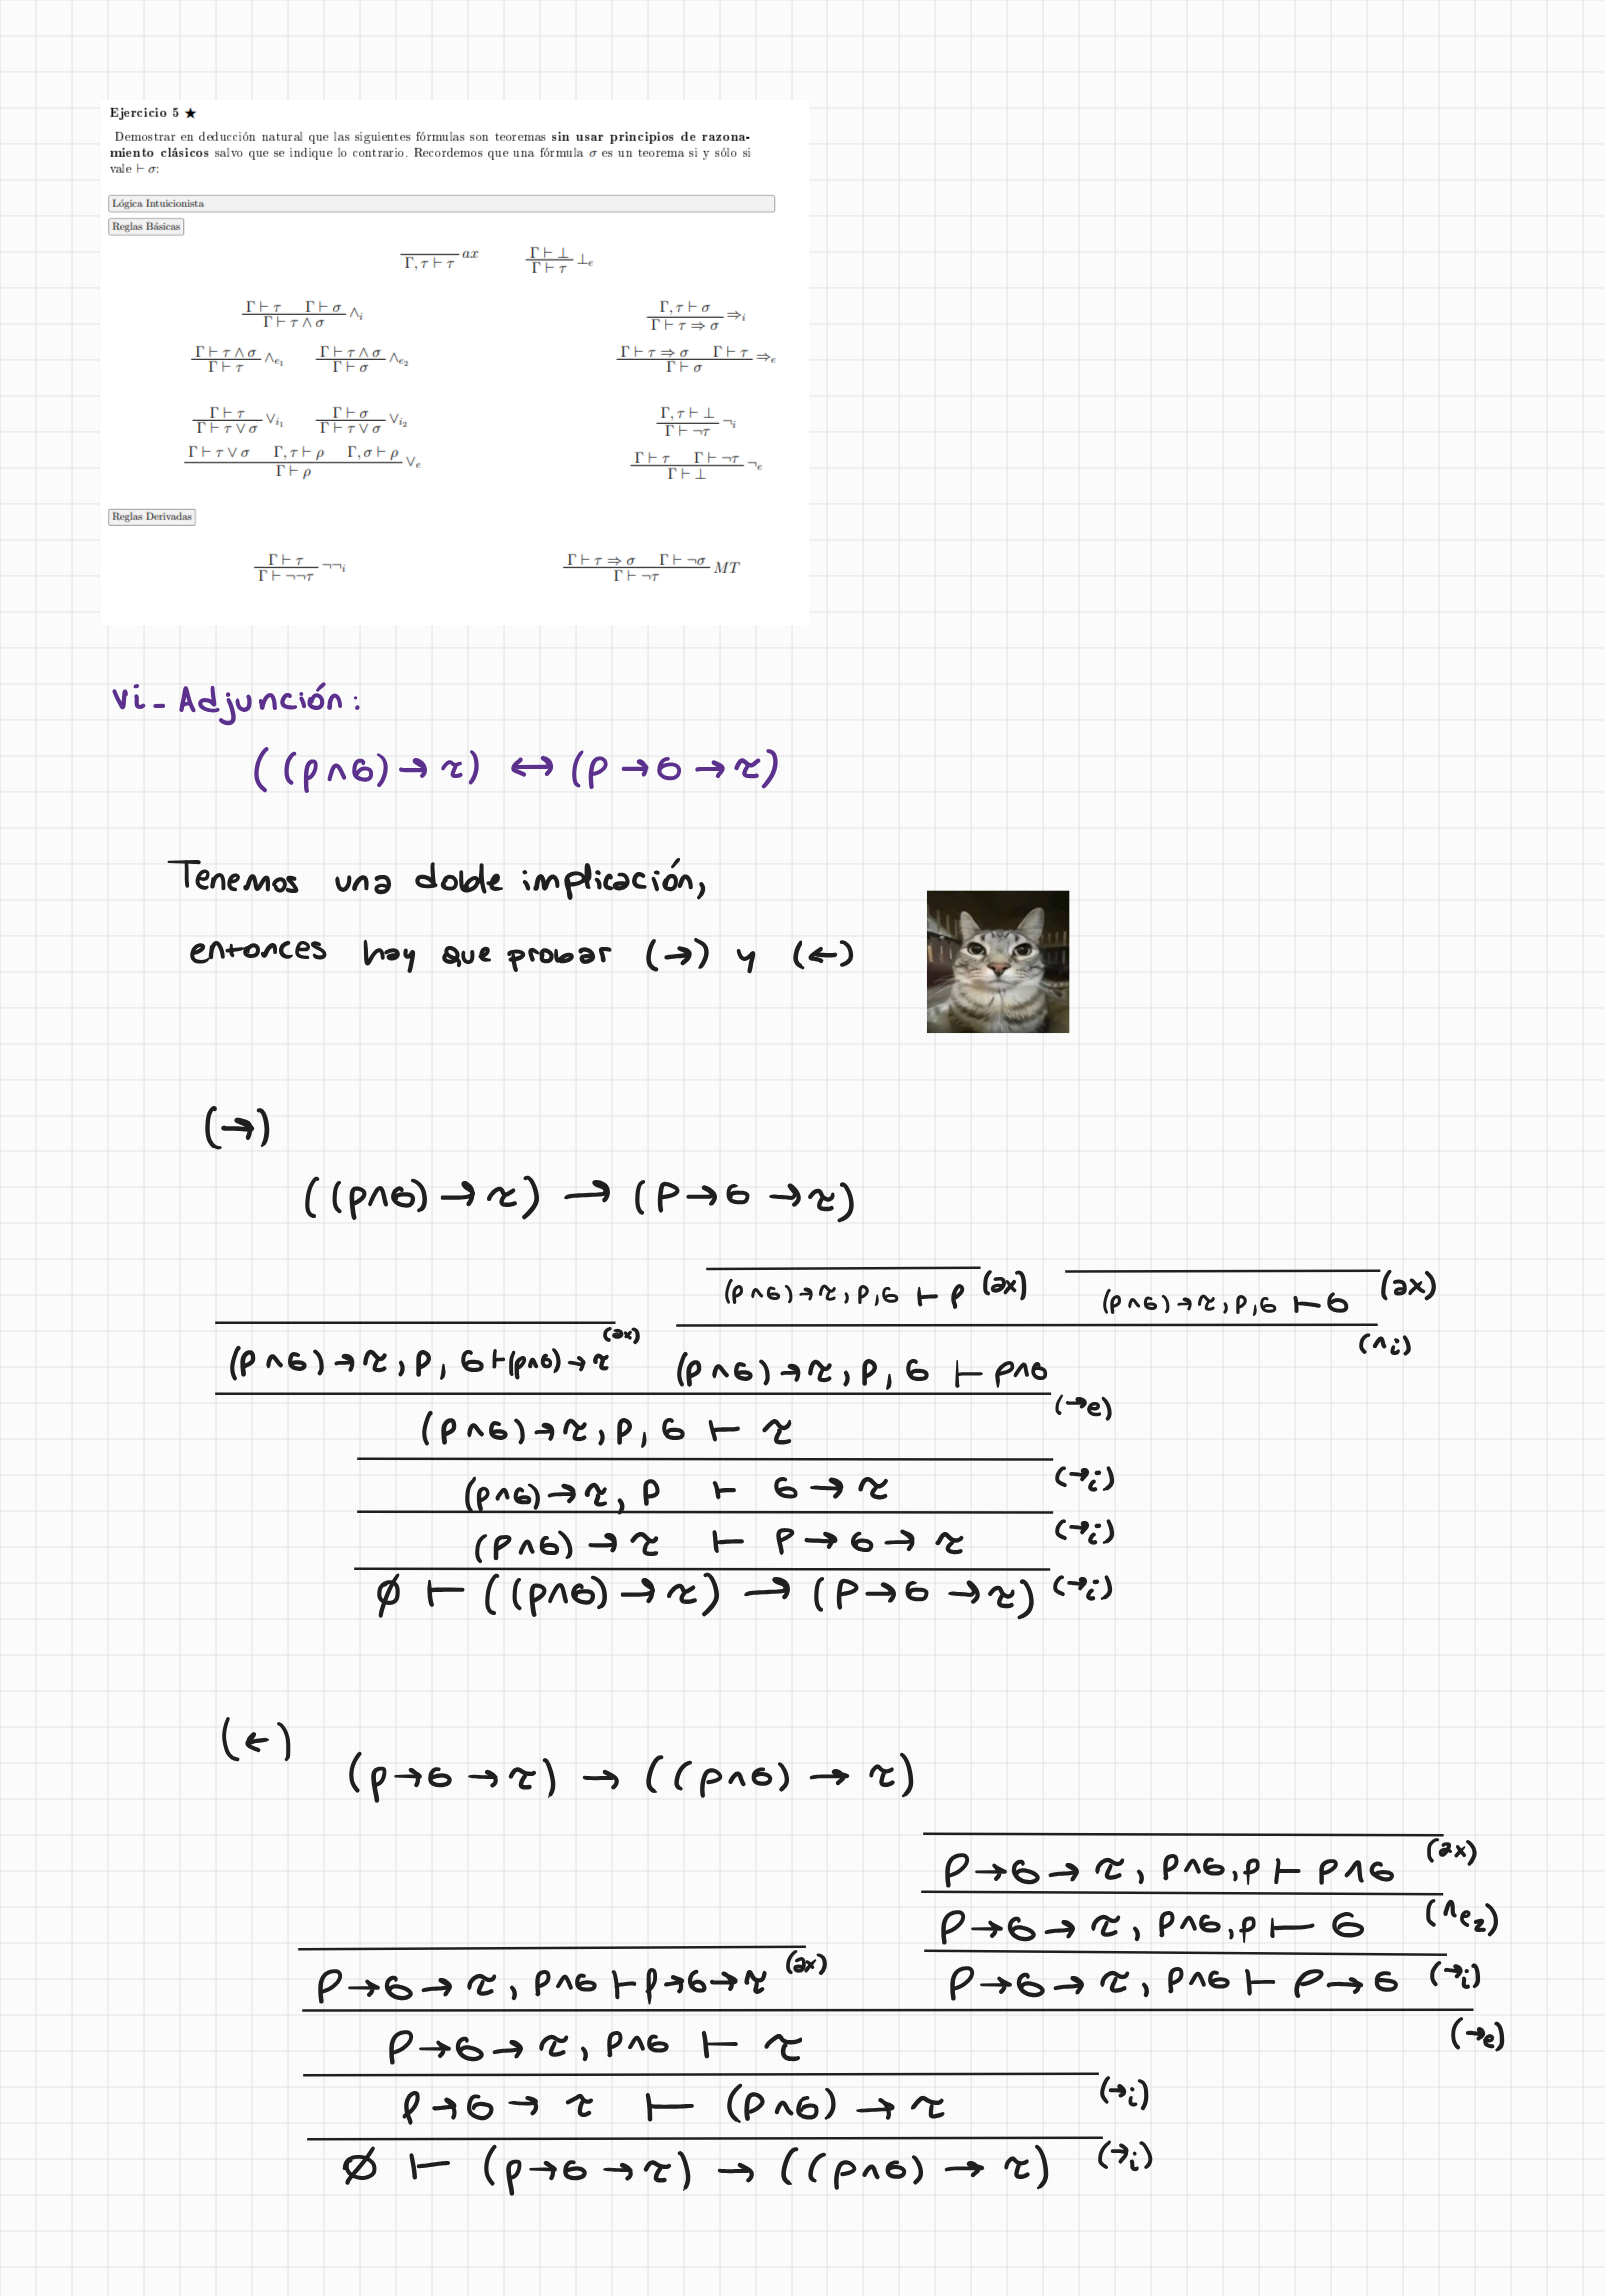 Ejercicio 5 ★
Demostrar en deducción natural que las siguientes fórmulas son teoremas sin usar principios de razona-
miento clásicos salvo que se indique lo contrario. Recordemos que una fórmula σ es un teorema si y sólo si
vale ⊢ σ:
Lógica Intuicionista
Reglas Básicas
Γ, τ ⊢ τ ax
Γ ⊢ ⊥
Γ ⊢ τ ⊥e
Γ ⊢ τ Γ ⊢ σ
Γ ⊢ τ ∧ σ ∧i
Γ, τ ⊢ σ
Γ ⊢ τ ⇒ σ ⇒i
Γ ⊢ τ ∧ σ
Γ ⊢ τ ∧e1
Γ ⊢ τ ∧ σ
Γ ⊢ σ ∧e2
Γ ⊢ τ ⇒ σ Γ ⊢ τ
Γ ⊢ σ ⇒e
Γ ⊢ τ
Γ ⊢ τ ∨ σ ∨i1
Γ ⊢ σ
Γ ⊢ τ ∨ σ ∨i2
Γ, τ ⊢ ⊥
Γ ⊢ ¬τ ¬i
Γ ⊢ τ ∨ σ Γ, τ ⊢ ρ Γ, σ ⊢ ρ
Γ ⊢ ρ ∨e
Γ ⊢ τ Γ ⊢ ¬τ
Γ ⊢ ⊥ ¬e
Reglas Derivadas
Γ ⊢ τ
Γ ⊢ ¬¬τ ¬¬i
Γ ⊢ τ ⇒ σ Γ ⊢ ¬σ
Γ ⊢ ¬τ MT
vi - Adjunción:
((ρ∧σ)→τ) ↔ (ρ→σ→τ)
Tenemos una doble implicación,
entonces hay que probar (→) y (←)
(→)
((ρ∧σ)→τ) → (ρ→σ→τ)
(ρ∧σ)→τ, ρ, σ ⊢ ρ (ax) (ρ∧σ)→τ, ρ, σ ⊢ σ (ax)
(ρ∧σ)→τ, ρ, σ ⊢ (ρ∧σ)→τ (ax) (ρ∧σ)→τ, ρ, σ ⊢ ρ∧σ (∧i)
(ρ∧σ)→τ, ρ, σ ⊢ τ (→e)
(ρ∧σ)→τ, ρ ⊢ σ→τ (→i)
(ρ∧σ)→τ ⊢ ρ→σ→τ (→i)
∅ ⊢ ((ρ∧σ)→τ) → (ρ→σ→τ) (→i)
(←)
(ρ→σ→τ) → ((ρ∧σ)→τ)
ρ→σ→τ, ρ∧σ, ρ ⊢ ρ∧σ (ax)
ρ→σ→τ, ρ∧σ, ρ ⊢ σ (∧e2)
ρ→σ→τ, ρ∧σ ⊢ ρ→σ→τ (ax) ρ→σ→τ, ρ∧σ ⊢ ρ→σ (→i)
ρ→σ→τ, ρ∧σ ⊢ τ (→e)
ρ→σ→τ ⊢ (ρ∧σ)→τ (→i)
∅ ⊢ (ρ→σ→τ) → ((ρ∧σ)→τ) (→i)